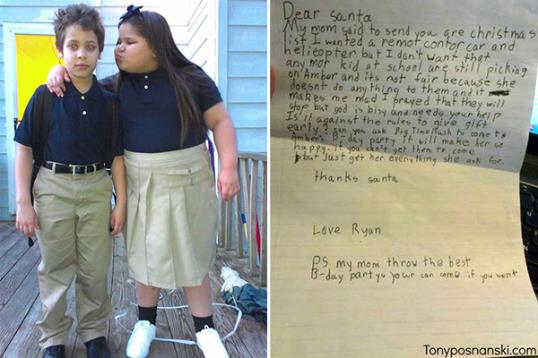 Dear santa
My mom said to send you are christmas
list I wanted a remot contor car and
helicopter but I dont want that
any mor kid at school are still picking
on Amber and its not fair because she
doesnt do anything to them and it
makes me mad I prayed that they will
stop but god is bisy and needs your help
Is it against the rules to give gift
early? can you ask Big Time Rush to come to
Amber's B-day party It will make her so
happy. If you cant get them to come
but Just get her everything she ask for.
thanks santa
Love Ryan
PS my mom throw the best
B-day partys your can come if you want
Tonyposnanski.com